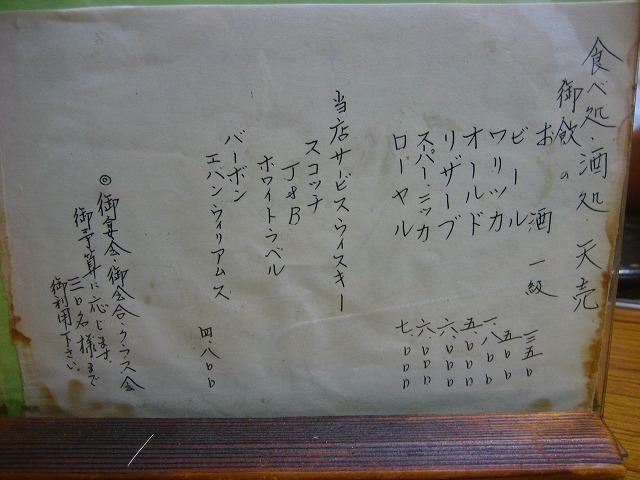 食べ処・酒処・天売
御飲の
お酒 一級 三五〇
ビール 五〇〇
ワリッカ 一.八〇〇
オールド 五.〇〇〇
リザーブ 六.〇〇〇
スーパー・ニッカ 六.〇〇〇
ローヤル 七.〇〇〇
当店サービスウィスキー
スコッチ
J&B
ホワイト・ラベル
バーボン
エバン・ウィリアムス 四.八〇〇
◎御宴会・御会合・クラス会
御予算に応じます。
三〇名様まで
御利用下さい。